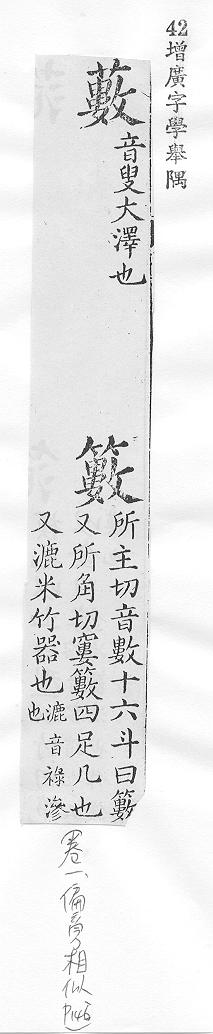 42增廣字學舉隅
藪
音叟大澤也
籔
所主切音數十六斗曰籔
又所角切窶籔四足几也
又漉米竹器也漉音祿滲
也
卷一、偏旁相似
P146